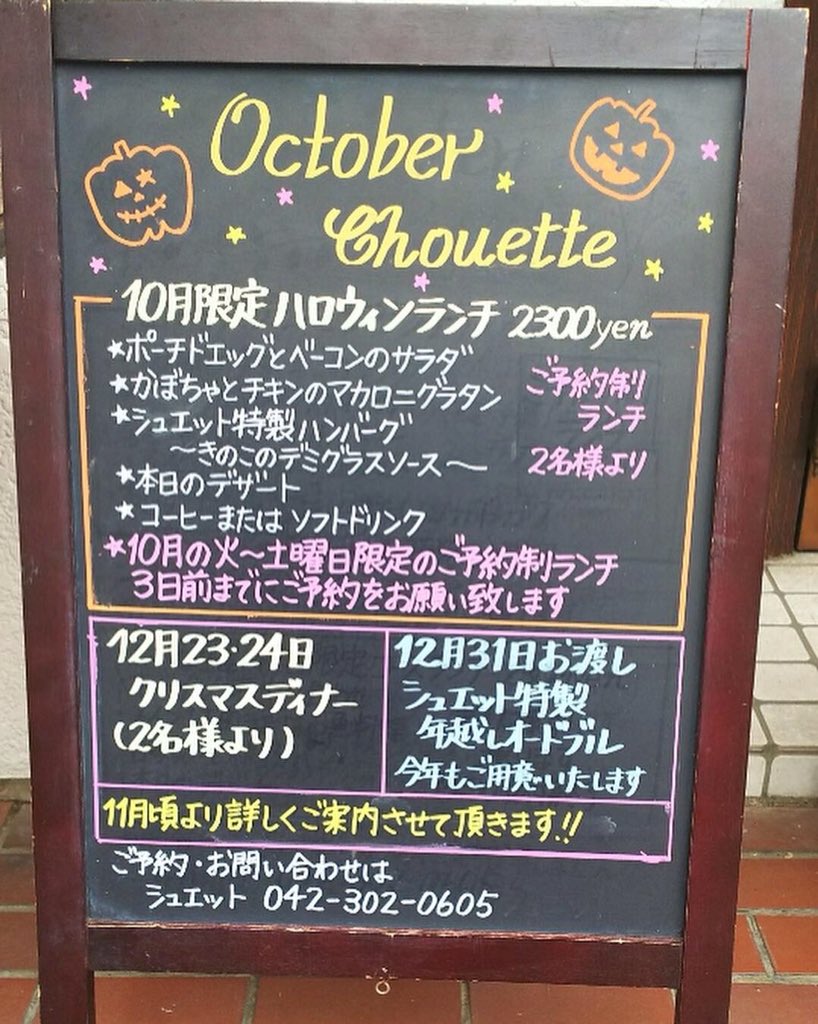 October
Chouette
10月限定 ハロウィンランチ 2300yen
★ポーチドエッグとベーコンのサラダ
★かぼちゃとチキンのマカロニグラタン
★シュエット特製ハンバーグ
～きのこのデミグラスソース～
★本日のデザート
★コーヒーまたは ソフトドリンク
ご予約制
ランチ
2名様より
★10月の火～土曜日限定のご予約制ランチ
3日前までにご予約をお願い致します
12月23・24日
クリスマスディナー
(2名様より)
12月31日お渡し
シュエット特製
年越しオードブル
今年もご用意いたします
11月頃より詳しくご案内させて頂きます!!
ご予約・お問い合わせは
シュエット 042-302-0605